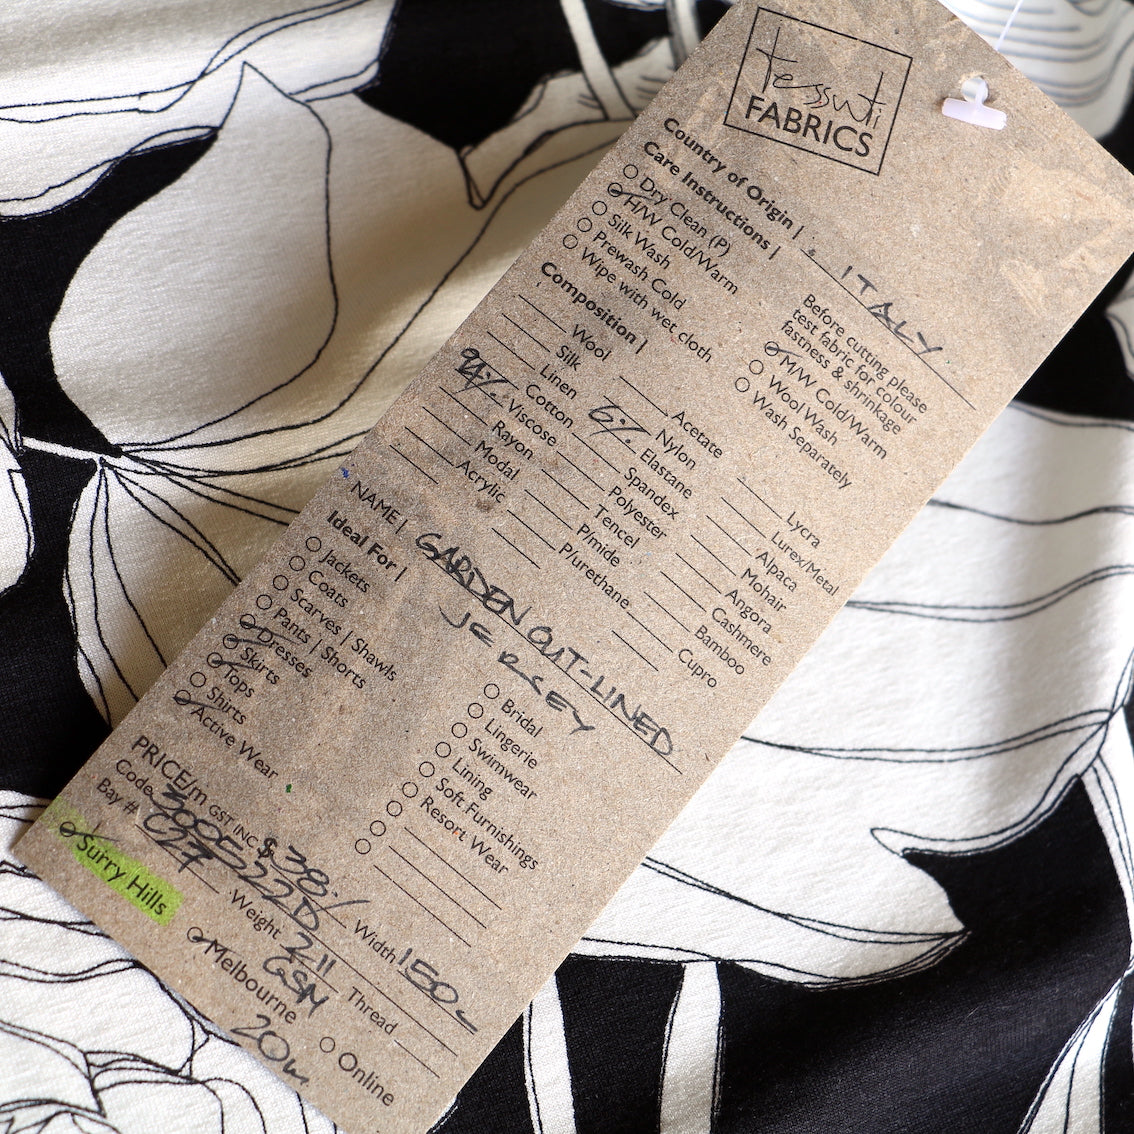 tessuti
FABRICS
Country of Origin | ITALY
Care Instructions |
Dry Clean (P)
H/W Cold/Warm
Silk Wash
Prewash Cold
Wipe with wet cloth
Before cutting please
test fabric for colour
fastness & shrinkage
M/W Cold/Warm
Wool Wash
Wash Separately
Composition |
Wool
Silk
Linen
Cotton
94% Viscose
Rayon
Modal
Acrylic
Acetate
Nylon
6% Elastane
Spandex
Polyester
Tencel
P/mide
P/urethane
Lycra
Lurex/Metal
Alpaca
Mohair
Angora
Cashmere
Bamboo
Cupro
NAME | GARDEN OUT-LINED
JERSEY
Ideal For |
Jackets
Coats
Scarves | Shawls
Pants | Shorts
Dresses
Skirts
Tops
Shirts
Active Wear
Bridal
Lingerie
Swimwear
Lining
Soft Furnishings
Resort Wear
PRICE/m GST INC $38.
Code 3006522D Width 150c
Bay # C27 Weight 211 GSM Thread
Surry Hills
Melbourne
Online
20m